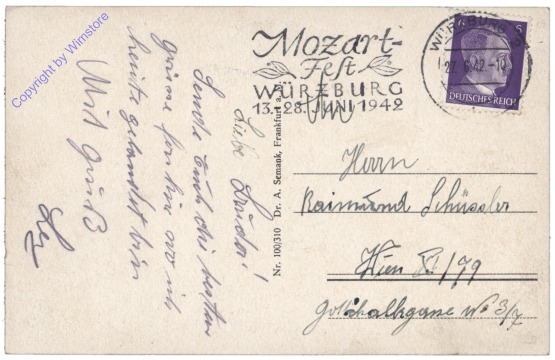 Copyright by Wimstore
Mozart-
Fest
WÜRZBURG
13.-28. JUNI 1942
WÜRZBURG
22.6.42.-
5
DEUTSCHES REICH
An
Herrn
Raimund Schüssler
Wien XI/79
Gottschalkgasse No 3/7
Nr. 100/310 Dr. A. Semank, Frankfurt a.
Liebe
Sende Euch die besten
Grüsse von wo ich
heute gelandet bin
Mit Gruß